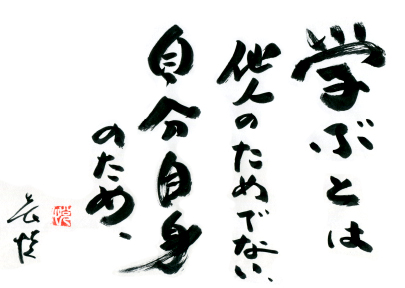 学ぶとは
他人のためでない、
自分自身
のため、